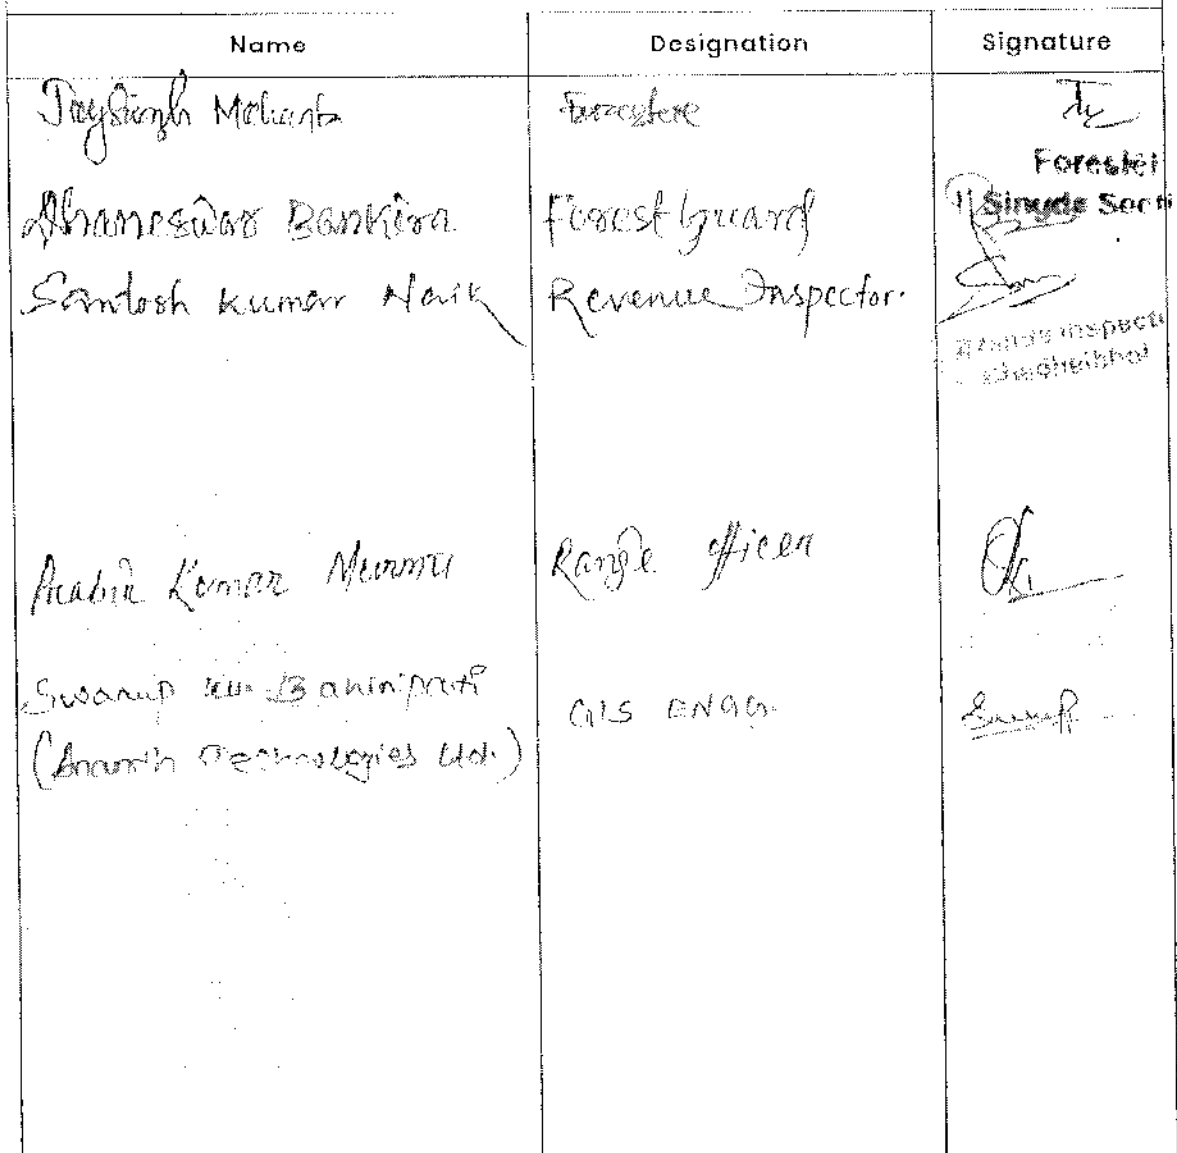 Name Designation Signature
Jaysingh Mohanta Forester
Forester
Dhaneswar Bankira Forest Guard
Santosh Kumar Naik Revenue Inspector.
Prabir Kumar Murmu Range Officer
Swarup Ku. Bahinipati GIS ENGG.
(Ananth Technologies Ltd.)